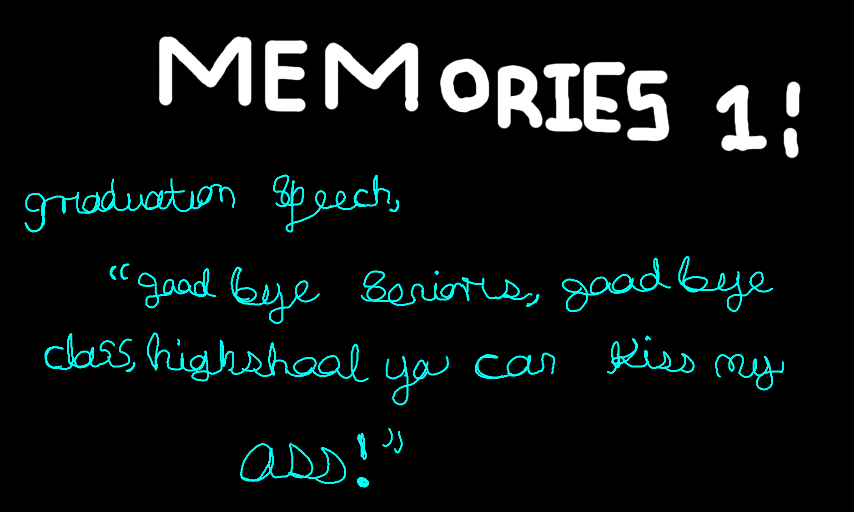 MEMORIES 1!
graduation speech,
“good bye seniors, good bye
class, highshool ya can kiss my
ass!”